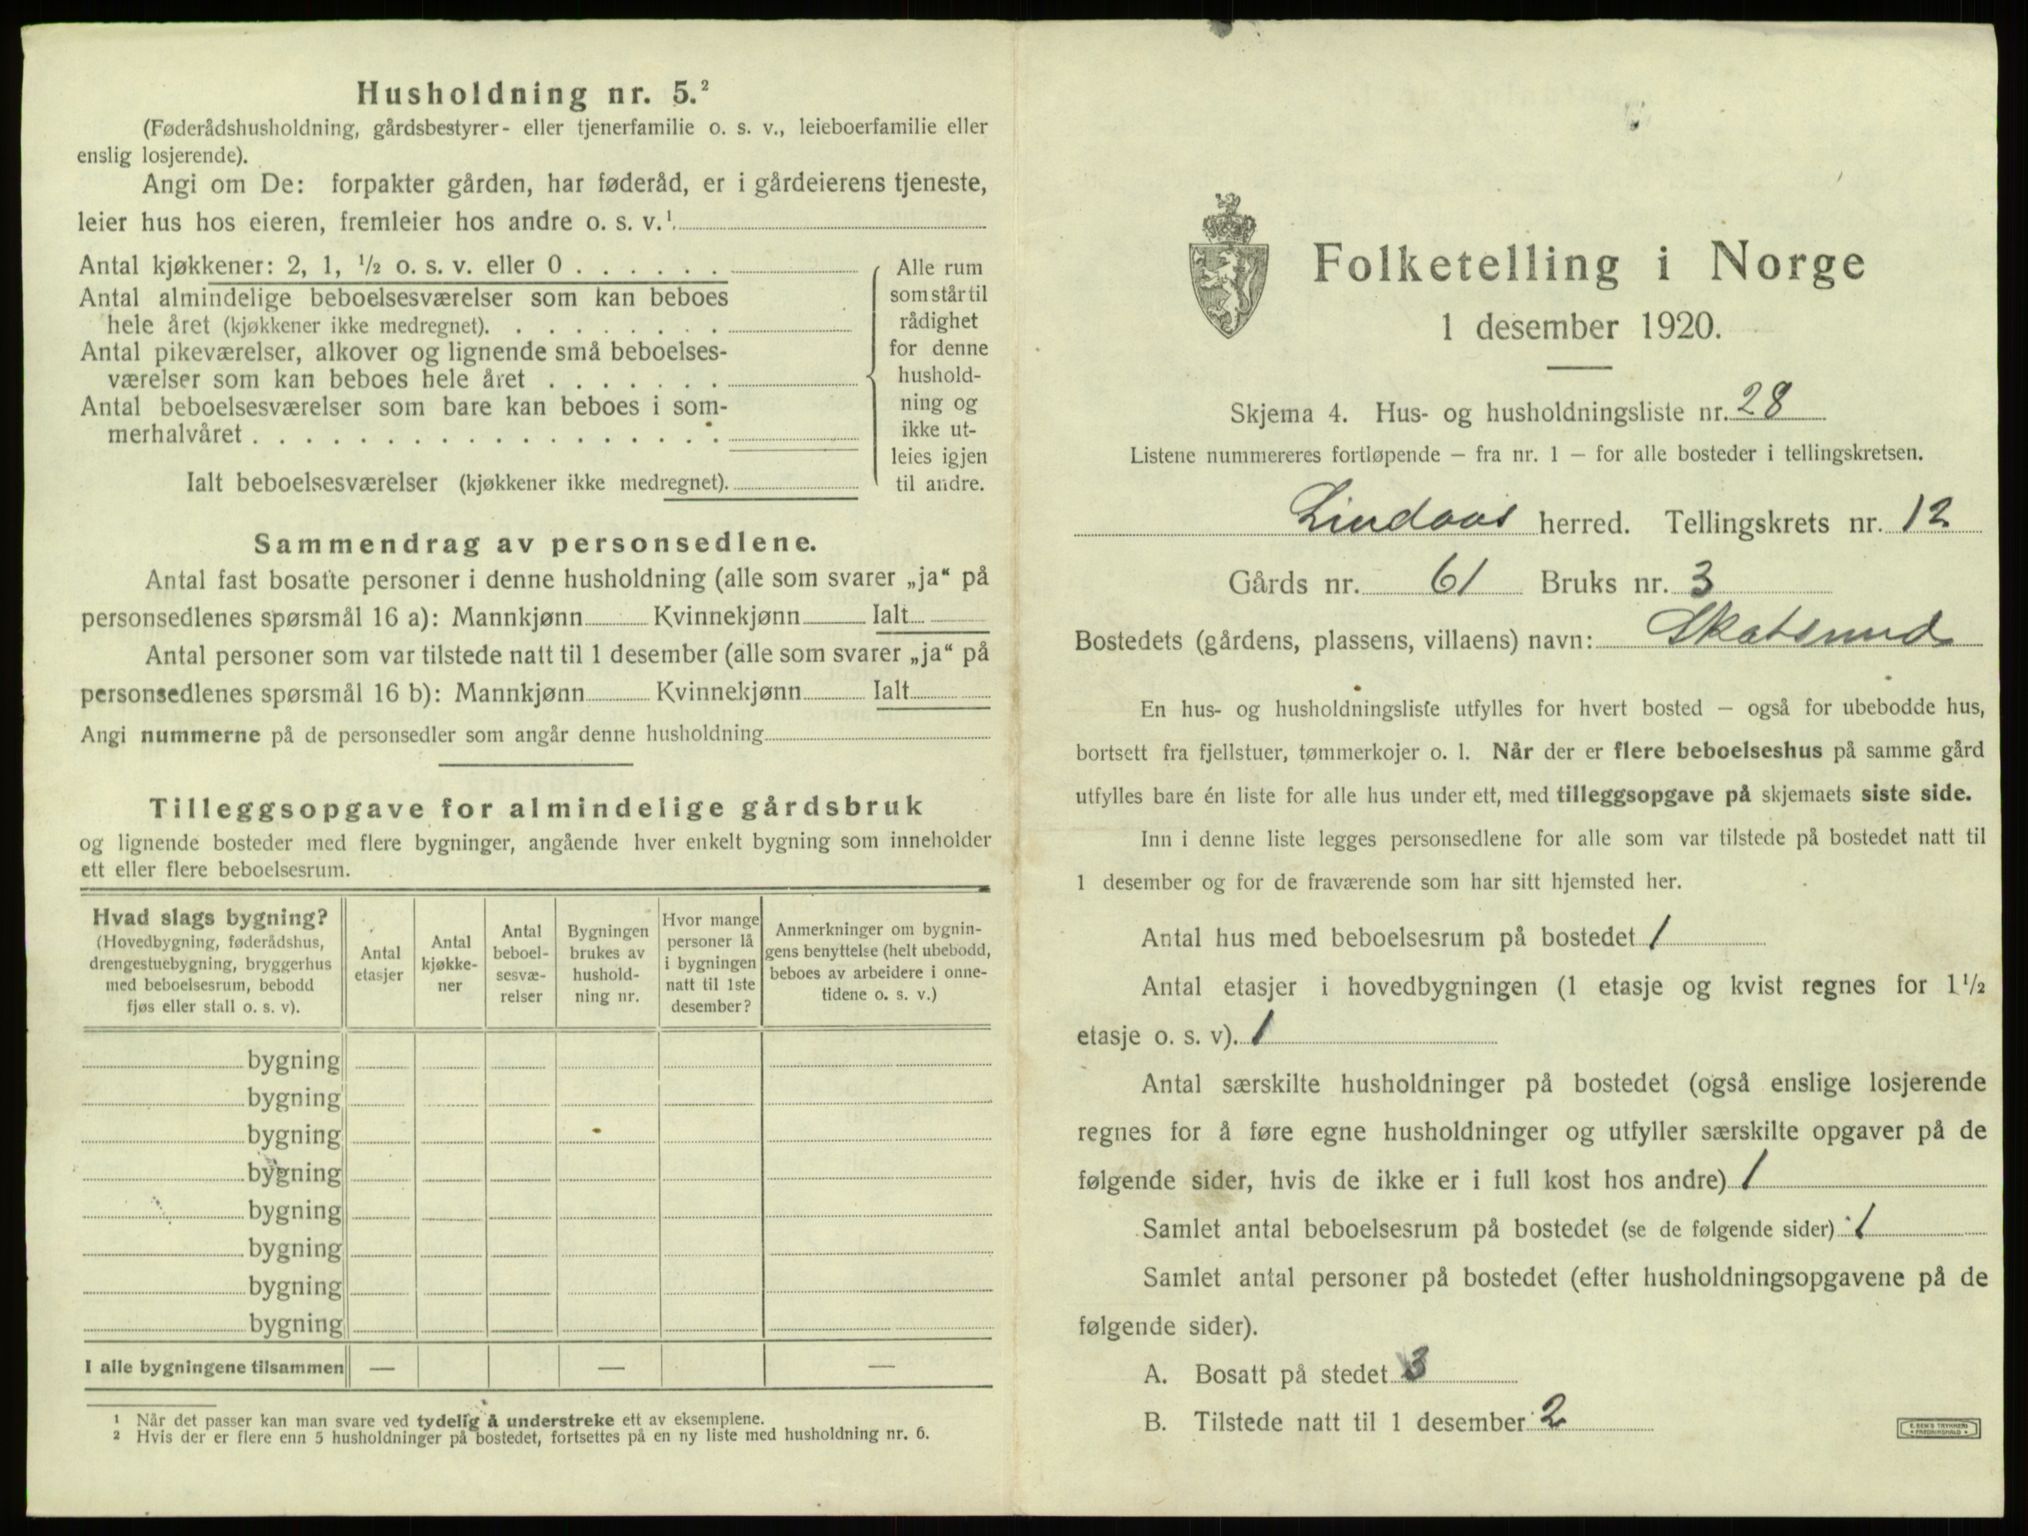 Husholdning nr. 5.²
(Føderådshusholdning, gårdsbestyrer- eller tjenerfamilie o. s. v., leieboerfamilie eller
enslig losjerende).
Angi om De: forpakter gården, har føderåd, er i gårdeierens tjeneste,
leier hus hos eieren, fremleier hos andre o. s. v.¹
Antal kjøkkener: 2, 1, ½ o. s. v. eller 0
Antal almindelige beboelsesværelser som kan beboes
hele året (kjøkkener ikke medregnet).
Antal pikeværelser, alkover og lignende små beboelses-
værelser som kan beboes hele året
Antal beboelsesværelser som bare kan beboes i som-
merhalvåret
Ialt beboelsesværelser (kjøkkener ikke medregnet).
Alle rum
som står til
rådighet
for denne
hushold-
ning og
ikke ut-
leies igjen
til andre.
Sammendrag av personsedlene.
Antal fast bosatte personer i denne husholdning (alle som svarer „ja“ på
personsedlenes spørsmål 16 a): Mannkjønn Kvinnekjønn Ialt
Antal personer som var tilstede natt til 1 desember (alle som svarer „ja“ på
personsedlenes spørsmål 16 b): Mannkjønn Kvinnekjønn Ialt
Angi nummerne på de personsedler som angår denne husholdning
Tilleggsopgave for almindelige gårdsbruk
og lignende bosteder med flere bygninger, angående hver enkelt bygning som inneholder
ett eller flere beboelsesrum.
Hvad slags bygning?
(Hovedbygning, føderådshus,
drengestuebygning, bryggerhus
med beboelsesrum, bebodd
fjøs eller stall o. s. v).
Antal
etasjer
Antal
kjøkke-
ner
Antal
beboel-
sesvæ-
relser
Bygningen
brukes av
hushold-
ning nr.
Hvor mange
personer lå
i bygningen
natt til 1ste
desember?
Anmerkninger om bygnin-
gens benyttelse (helt ubebodd,
beboes av arbeidere i onne-
tidene o. s. v.)
bygning
bygning
bygning
bygning
bygning
bygning
bygning
bygning
I alle bygningene tilsammen — — —
¹ Når det passer kan man svare ved tydelig å understreke ett av eksemplene.
² Hvis der er flere enn 5 husholdninger på bostedet, fortsettes på en ny liste med husholdning nr. 6.
Folketelling i Norge
1 desember 1920.
Skjema 4. Hus- og husholdningsliste nr. 28
Listene nummereres fortløpende – fra nr. 1 – for alle bosteder i tellingskretsen.
Lindaas herred. Tellingskrets nr. 12
Gårds nr. 61 Bruks nr. 3
Bostedets (gårdens, plassens, villaens) navn: Skatsund
En hus- og husholdningsliste utfylles for hvert bosted – også for ubebodde hus,
bortsett fra fjellstuer, tømmerkojer o. l. Når der er flere beboelseshus på samme gård
utfylles bare én liste for alle hus under ett, med tilleggsopgave på skjemaets siste side.
Inn i denne liste legges personsedlene for alle som var tilstede på bostedet natt til
1 desember og for de fraværende som har sitt hjemsted her.
Antal hus med beboelsesrum på bostedet 1
Antal etasjer i hovedbygningen (1 etasje og kvist regnes for 1½
etasje o. s. v). 1
Antal særskilte husholdninger på bostedet (også enslige losjerende
regnes for å føre egne husholdninger og utfyller særskilte opgaver på de
følgende sider, hvis de ikke er i full kost hos andre) 1
Samlet antal beboelsesrum på bostedet (se de følgende sider) 1
Samlet antal personer på bostedet (efter husholdningsopgavene på de
følgende sider).
A. Bosatt på stedet 3
B. Tilstede natt til 1 desember 2